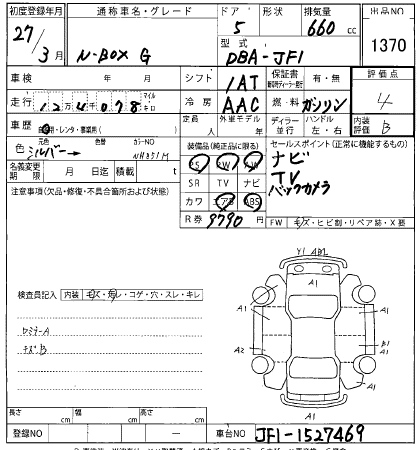 初度登録年月 通称車名・グレード ドア 形状 排気量 出品NO
27 / 3月 N-BOX G 5 660 cc 1370
型式 DBA-JF1
車検 年 月 シフト 1AT 保証書 有・無 評価点
走行 12万4千078 マイル キロ 冷房 AAC 燃料 ガソリン 4
車歴 自家用・レンタ・事業用( ) 定員 人 外車モデル 年 ディーラー 並行 ハンドル 左・右 内装評価 B
色 元色 シルバー 色替 カラーNO NH851M 装備品(純正品に限る) セールスポイント(正常に機能するもの)
名義変更期限 月 日迄 積載 t PS PW AW ナビ
注意事項(欠品・修復・不具合箇所および状態) SR TV ナビ TV
カワ エアB ABS バックカメラ
R券 9790 FW キズ・ヒビ割・リペア跡・X要
Y1 AB2
A1
検査員記入 内装 キズ・汚レ・コゲ・穴・スレ・キレ
A1 A1
A1
A2 B1
A1
キズB
A1
A1
長さ cm 幅 cm 高さ cm
登録NO 車台NO JF1-1527469